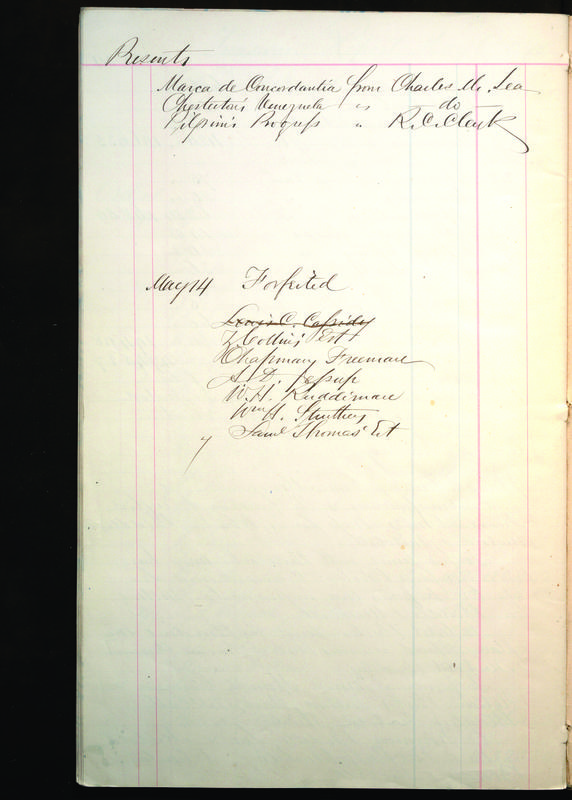 Presents
Marca de Concordantia from Charles M. Lea
Chesterton's Venezuela " do
Pilgrim's Progress " R. C. Clark
May 14 Forfeited
Lewis C. Cassidy
Z Collins Est
Chapman Freeman
A. D. Jessup
W. H. Ruddiman
Wm H. Struthers
Saml Thomas' Est
7